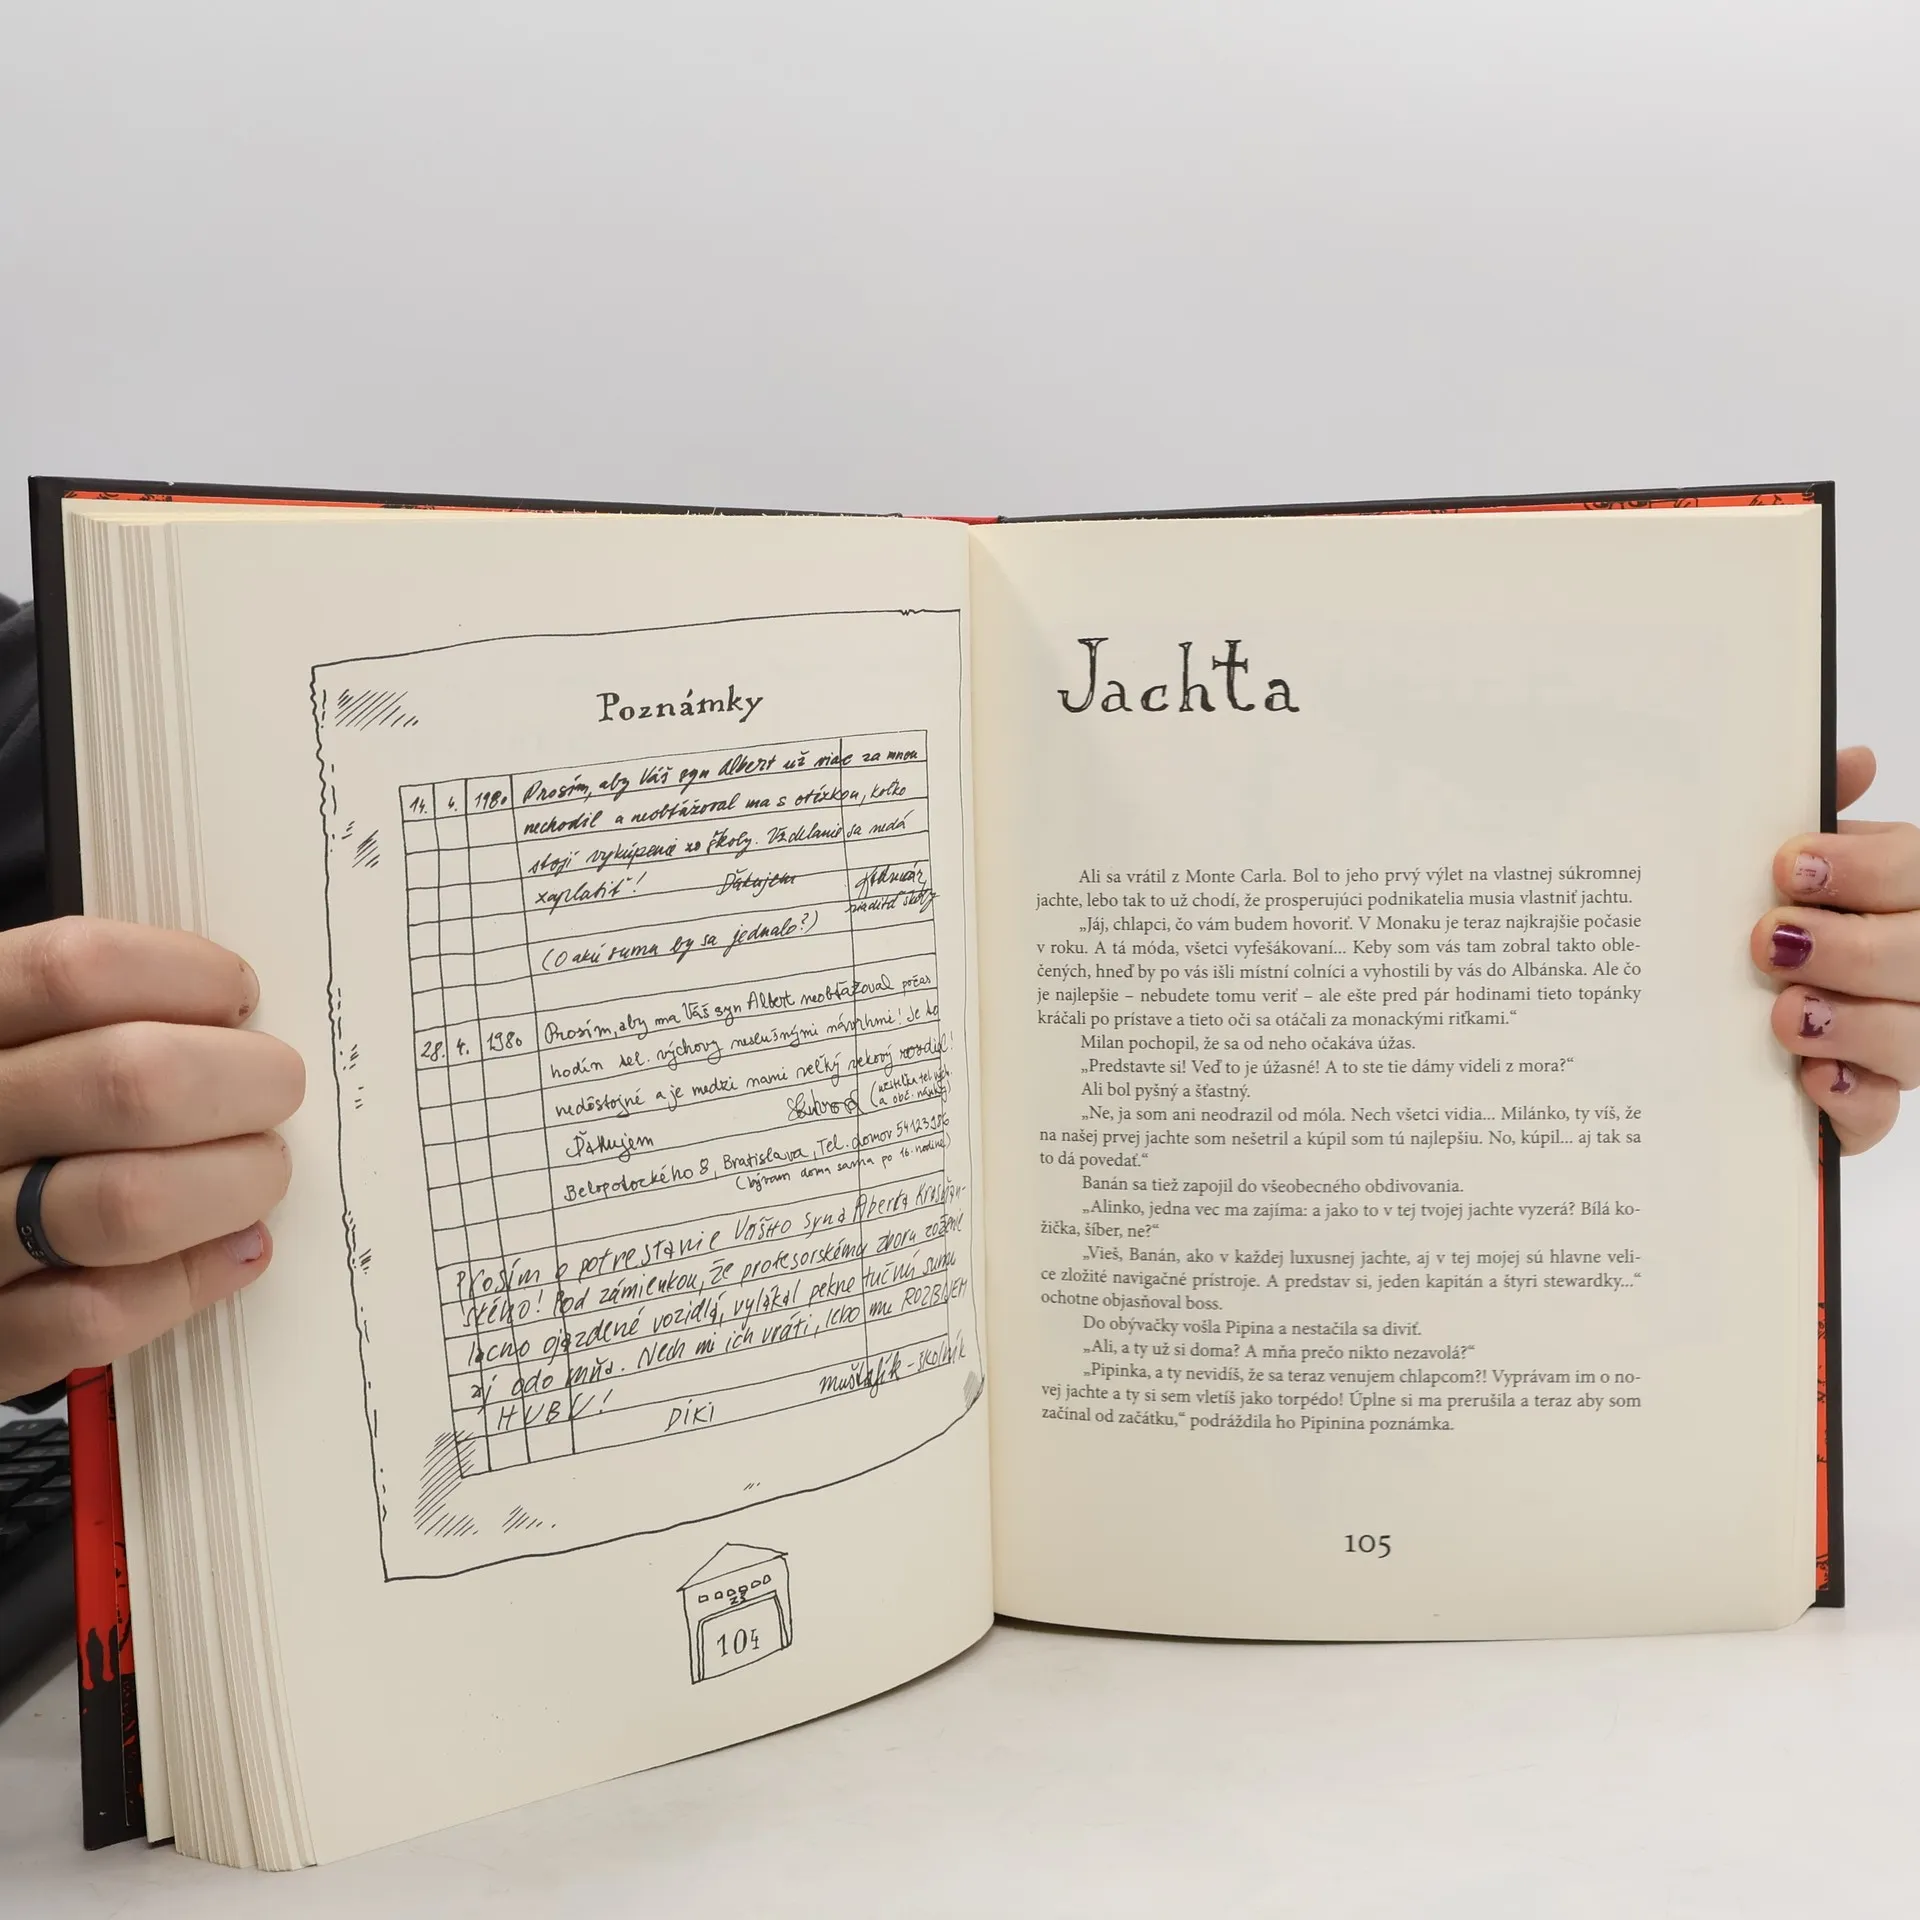 Poznámky
14. 4. 1980 Prosím, aby Váš syn Albert už viac za mnou
nechodil a neobťažoval ma s otázkou, koľko
stojí vykúpenie zo školy. Vzdelanie sa nedá
zaplatiť! Ďakujem
riaditeľ školy
(O akú sumu by sa jednalo?)
28. 4. 1980 Prosím, aby ma Váš syn Albert neobťažoval počas
hodín tel. výchovy neslušnými návrhmi! Je to
nedôstojné a je medzi nami veľký vekový rozdiel!
Ďakujem (učiteľka tel. vých.
a obč. náuky)
Belopotockého 8, Bratislava, Tel. domov 54123986
(bývam doma sama po 16. hodine)
Prosím o potrestanie Vášho syna Alberta
stého! Pod zámienkou, že profesorskému zboru zoženie
lacno ojazdené vozidlá, vylákal pekne tučnú sumu
aj odo mňa. Nech mi ich vráti, lebo mu ROZBIJEM
HUBU! DÍKI Muštafík - školník
ZŠ
104
Jachta
Ali sa vrátil z Monte Carla. Bol to jeho prvý výlet na vlastnej súkromnej
jachte, lebo tak to už chodí, že prosperujúci podnikatelia musia vlastniť jachtu.
„Jáj, chlapci, čo vám budem hovoriť. V Monaku je teraz najkrajšie počasie
v roku. A tá móda, všetci vyfešákovaní... Keby som vás tam zobral takto oble-
čených, hneď by po vás išli místní colníci a vyhostili by vás do Albánska. Ale čo
je najlepšie – nebudete tomu veriť – ale ešte pred pár hodinami tieto topánky
kráčali po prístave a tieto oči sa otáčali za monackými riťkami.“
Milan pochopil, že sa od neho očakáva úžas.
„Predstavte si! Veď to je úžasné! A to ste tie dámy videli z mora?“
Ali bol pyšný a šťastný.
„Ne, ja som ani neodrazil od móla. Nech všetci vidia... Milánko, ty víš, že
na našej prvej jachte som nešetril a kúpil som tú najlepšiu. No, kúpil... aj tak sa
to dá povedať.“
Banán sa tiež zapojil do všeobecného obdivovania.
„Alinko, jedna vec ma zajíma: a jako to v tej tvojej jachte vyzerá? Bílá ko-
žička, šíber, ne?“
„Vieš, Banán, ako v každej luxusnej jachte, aj v tej mojej sú hlavne veli-
ce zložité navigačné prístroje. A predstav si, jeden kapitán a štyri stewardky...“
ochotne objasňoval boss.
Do obývačky vošla Pipina a nestačila sa diviť.
„Ali, a ty už si doma? A mňa prečo nikto nezavolá?“
„Pipinka, a ty nevidíš, že sa teraz venujem chlapcom?! Vyprávam im o no-
vej jachte a ty si sem vletíš jako torpédo! Úplne si ma prerušila a teraz aby som
začínal od začátku,“ podráždila ho Pipinina poznámka.
105